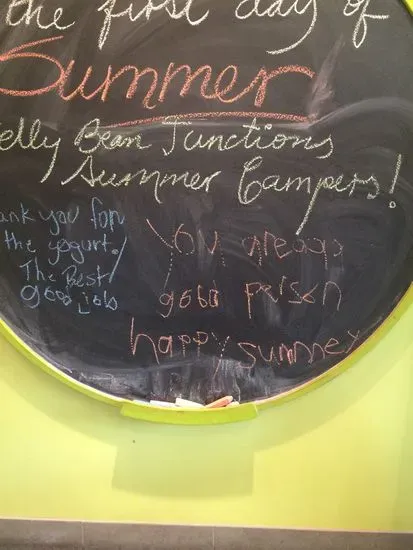 the first day of
Summer
elly Bean Junctions
Summer Campers!
ank you for
the yogurt.
The Best
good job
You are aap
good person
happy summer